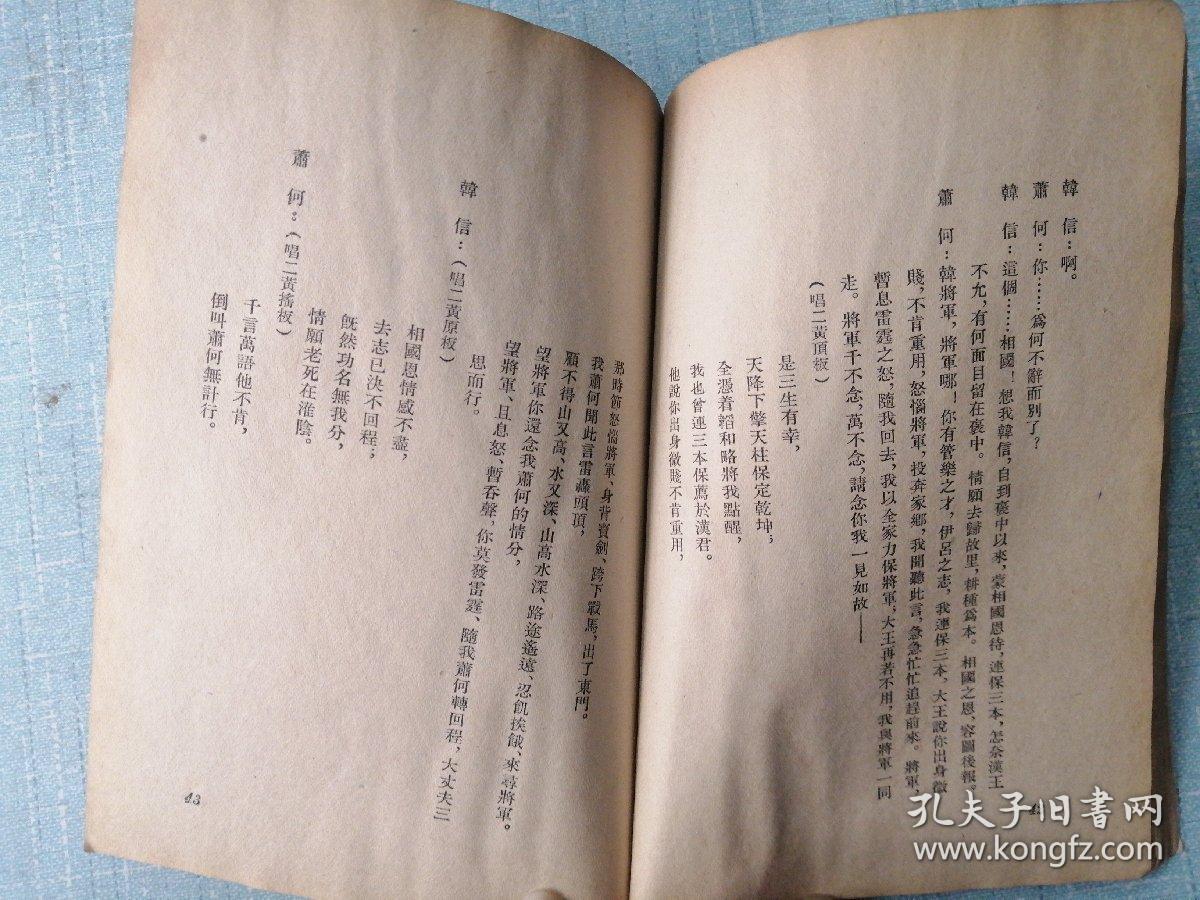 韓　信：啊。
蕭　何：你……爲何不辭而別了？
韓　信：這個……相國！想我韓信，自到褒中以來，蒙相國恩待，連保三本，怎奈漢王
不允，有何面目留在褒中。情願去歸故里，耕種爲本。相國之恩，容圖後報。
蕭　何：韓將軍，將軍哪！你有管樂之才，伊呂之志，我連保三本，大王說你出身微
賤，不肯重用，怒惱將軍，投奔家鄉，我聞聽此言，急急忙忙追趕前來。將軍，
暫息雷霆之怒，隨我回去，我以全家力保將軍，大王再若不用，我與將軍一同
走。將軍千不念，萬不念，請念你我一見如故——
（唱二黃頂板）
是三生有幸，
天降下擎天柱保定乾坤；
全憑着韜和略將我點醒，
我也曾連三本保薦於漢君。
他說你出身微賤不肯重用，
那時節怒惱將軍、身背寶劍、跨下戰馬，出了東門。
我蕭何聞此言雷轟頭頂，
顧不得山又高、水又深、山高水深、路途遙遠、忍飢挨餓、來尋將軍。
望將軍你還念我蕭何的情分，
望將軍、且息怒、暫吞聲，你莫發雷霆、隨我蕭何轉回程，大丈夫三
思而行。
韓　信：（唱二黃原板）
相國恩情感不盡，
去志已決不回程；
旣然功名無我分，
情願老死在淮陰。
蕭　何：（唱二黃搖板）
千言萬語他不肯，
倒叫蕭何無計行。
43
孔夫子旧书网
www.kongfz.com